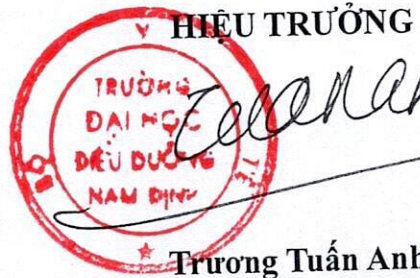 HIỆU TRƯỞNG
TRƯỜNG
ĐẠI HỌC
ĐIỀU DƯỠNG
NAM ĐỊNH
BỘ Y TẾ
Trương Tuấn Anh